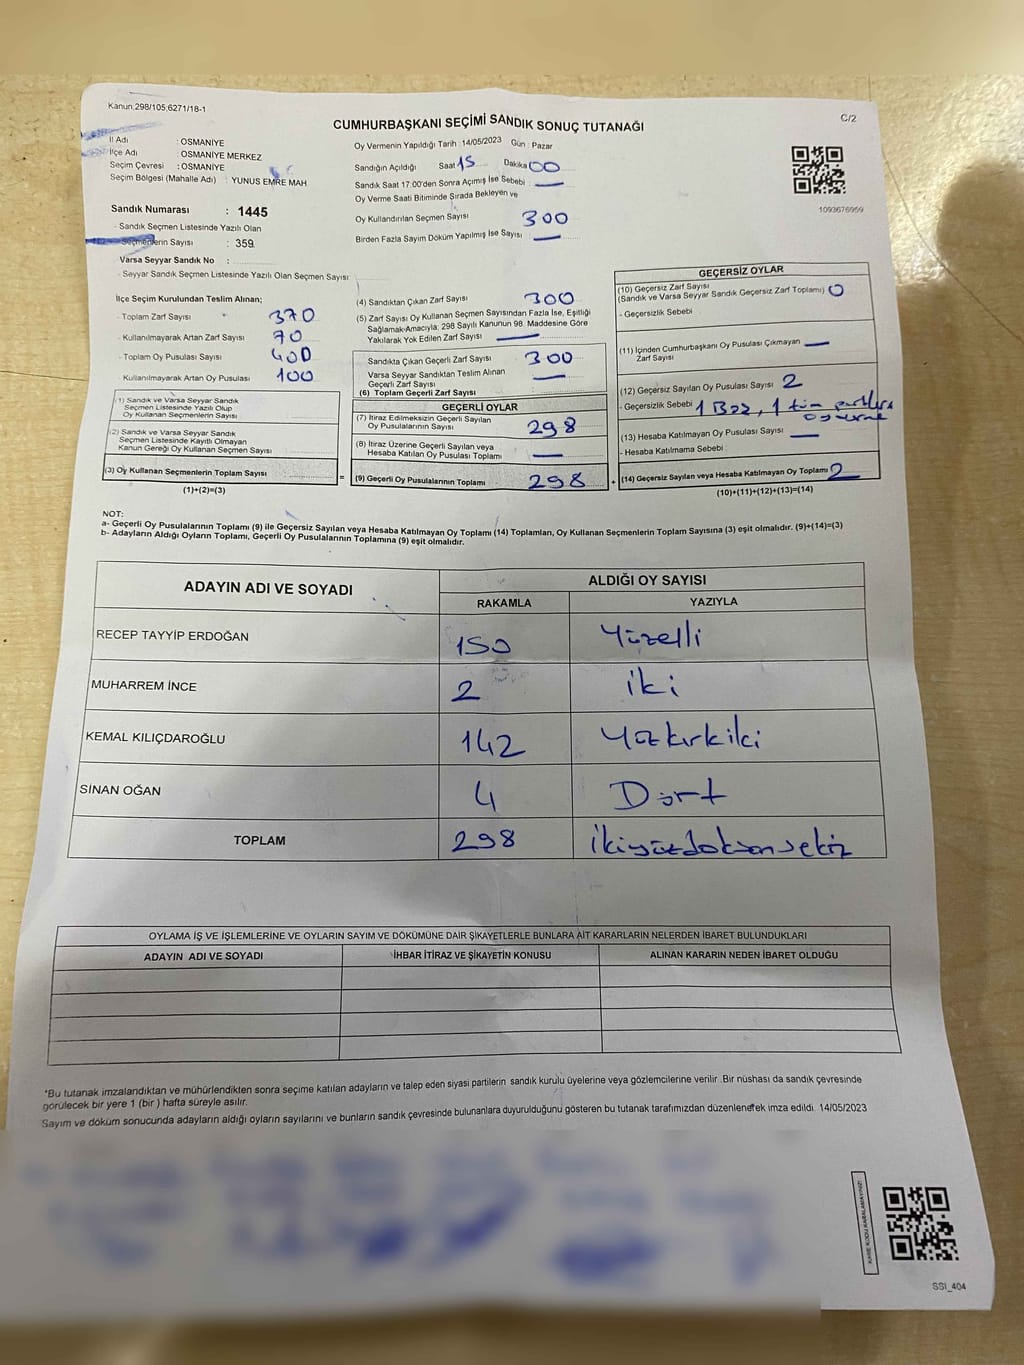 Kanun 298/105;6271/18-1
C/2
CUMHURBAŞKANI SEÇİMİ SANDIK SONUÇ TUTANAĞI
İl Adı : OSMANİYE
İlçe Adı : OSMANİYE MERKEZ
Seçim Çevresi : OSMANİYE
Seçim Bölgesi (Mahalle Adı) : YUNUS EMRE MAH
Sandık Numarası : 1445
- Sandık Seçmen Listesinde Yazılı Olan
Seçmenlerin Sayısı : 359
Varsa Seyyar Sandık No :
- Seyyar Sandık Seçmen Listesinde Yazılı Olan Seçmen Sayısı:
Oy Vermenin Yapıldığı Tarih : 14/05/2023 Gün : Pazar
Sandığın Açıldığı Saat 15 Dakika 00
Sandık Saat 17.00'den Sonra Açılmış İse Sebebi —
Oy Verme Saati Bitiminde Sırada Bekleyen ve
Oy Kullandırılan Seçmen Sayısı 300
Birden Fazla Sayım Döküm Yapılmış İse Sayısı —
1093676959
İlçe Seçim Kurulundan Teslim Alınan;
- Toplam Zarf Sayısı 370
- Kullanılmayarak Artan Zarf Sayısı 70
- Toplam Oy Pusulası Sayısı 400
- Kullanılmayarak Artan Oy Pusulası 100
(1) Sandık ve Varsa Seyyar Sandık
Seçmen Listesinde Yazılı Olup
Oy Kullanan Seçmenlerin Sayısı
(2) Sandık ve Varsa Seyyar Sandık
Seçmen Listesinde Kayıtlı Olmayan
Kanun Gereği Oy Kullanan Seçmen Sayısı
(3) Oy Kullanan Seçmenlerin Toplam Sayısı =
(1)+(2)=(3)
(4) Sandıktan Çıkan Zarf Sayısı 300
(5) Zarf Sayısı Oy Kullanan Seçmen Sayısından Fazla İse, Eşitliği
Sağlamak Amacıyla; 298 Sayılı Kanunun 98. Maddesine Göre
Yakılarak Yok Edilen Zarf Sayısı —
Sandıkta Çıkan Geçerli Zarf Sayısı 300
Varsa Seyyar Sandıktan Teslim Alınan
Geçerli Zarf Sayısı —
(6) Toplam Geçerli Zarf Sayısı
GEÇERLİ OYLAR
(7) İtiraz Edilmeksizin Geçerli Sayılan
Oy Pusulalarının Sayısı 298
(8) İtiraz Üzerine Geçerli Sayılan veya
Hesaba Katılan Oy Pusulası Toplamı —
(9) Geçerli Oy Pusulalarının Toplamı 298 +
GEÇERSİZ OYLAR
(10) Geçersiz Zarf Sayısı
(Sandık ve Varsa Seyyar Sandık Geçersiz Zarf Toplamı) 0
- Geçersizlik Sebebi
(11) İçinden Cumhurbaşkanı Oy Pusulası Çıkmayan
Zarf Sayısı —
(12) Geçersiz Sayılan Oy Pusulası Sayısı 2
- Geçersizlik Sebebi 1 Boş, 1 tüm partilere
(13) Hesaba Katılmayan Oy Pusulası Sayısı —
- Hesaba Katılmama Sebebi
(14) Geçersiz Sayılan veya Hesaba Katılmayan Oy Toplamı 2
(10)+(11)+(12)+(13)=(14)
NOT:
a- Geçerli Oy Pusulalarının Toplamı (9) ile Geçersiz Sayılan veya Hesaba Katılmayan Oy Toplamı (14) Toplamları, Oy Kullanan Seçmenlerin Toplam Sayısına (3) eşit olmalıdır. (9)+(14)=(3)
b- Adayların Aldığı Oyların Toplamı, Geçerli Oy Pusulalarının Toplamına (9) eşit olmalıdır.
ADAYIN ADI VE SOYADI ALDIĞI OY SAYISI
RAKAMLA YAZIYLA
RECEP TAYYİP ERDOĞAN 150 Yüzelli
MUHARREM İNCE 2 iki
KEMAL KILIÇDAROĞLU 142 Yüzkırkiki
SİNAN OĞAN 4 Dört
TOPLAM 298 ikiyüzdoksansekiz
OYLAMA İŞ VE İŞLEMLERİNE VE OYLARIN SAYIM VE DÖKÜMÜNE DAİR ŞİKAYETLERLE BUNLARA AİT KARARLARIN NELERDEN İBARET BULUNDUKLARI
ADAYIN ADI VE SOYADI İHBAR İTİRAZ VE ŞİKAYETİN KONUSU ALINAN KARARIN NEDEN İBARET OLDUĞU
*Bu tutanak imzalandıktan ve mühürlendikten sonra seçime katılan adayların ve talep eden siyasi partilerin sandık kurulu üyelerine veya gözlemcilerine verilir. Bir nüshası da sandık çevresinde
görülecek bir yere 1 (bir) hafta süreyle asılır.
Sayım ve döküm sonucunda adayların aldığı oyların sayılarını ve bunların sandık çevresinde bulunanlara duyurulduğunu gösteren bu tutanak tarafımızdan düzenlenerek imza edildi. 14/05/2023
KARE KODU KARALAMAYINIZ!
SSI_404